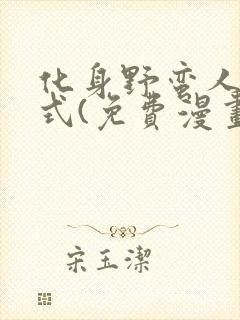 化身野蛮人
式(免費漫畫
宋玉潔